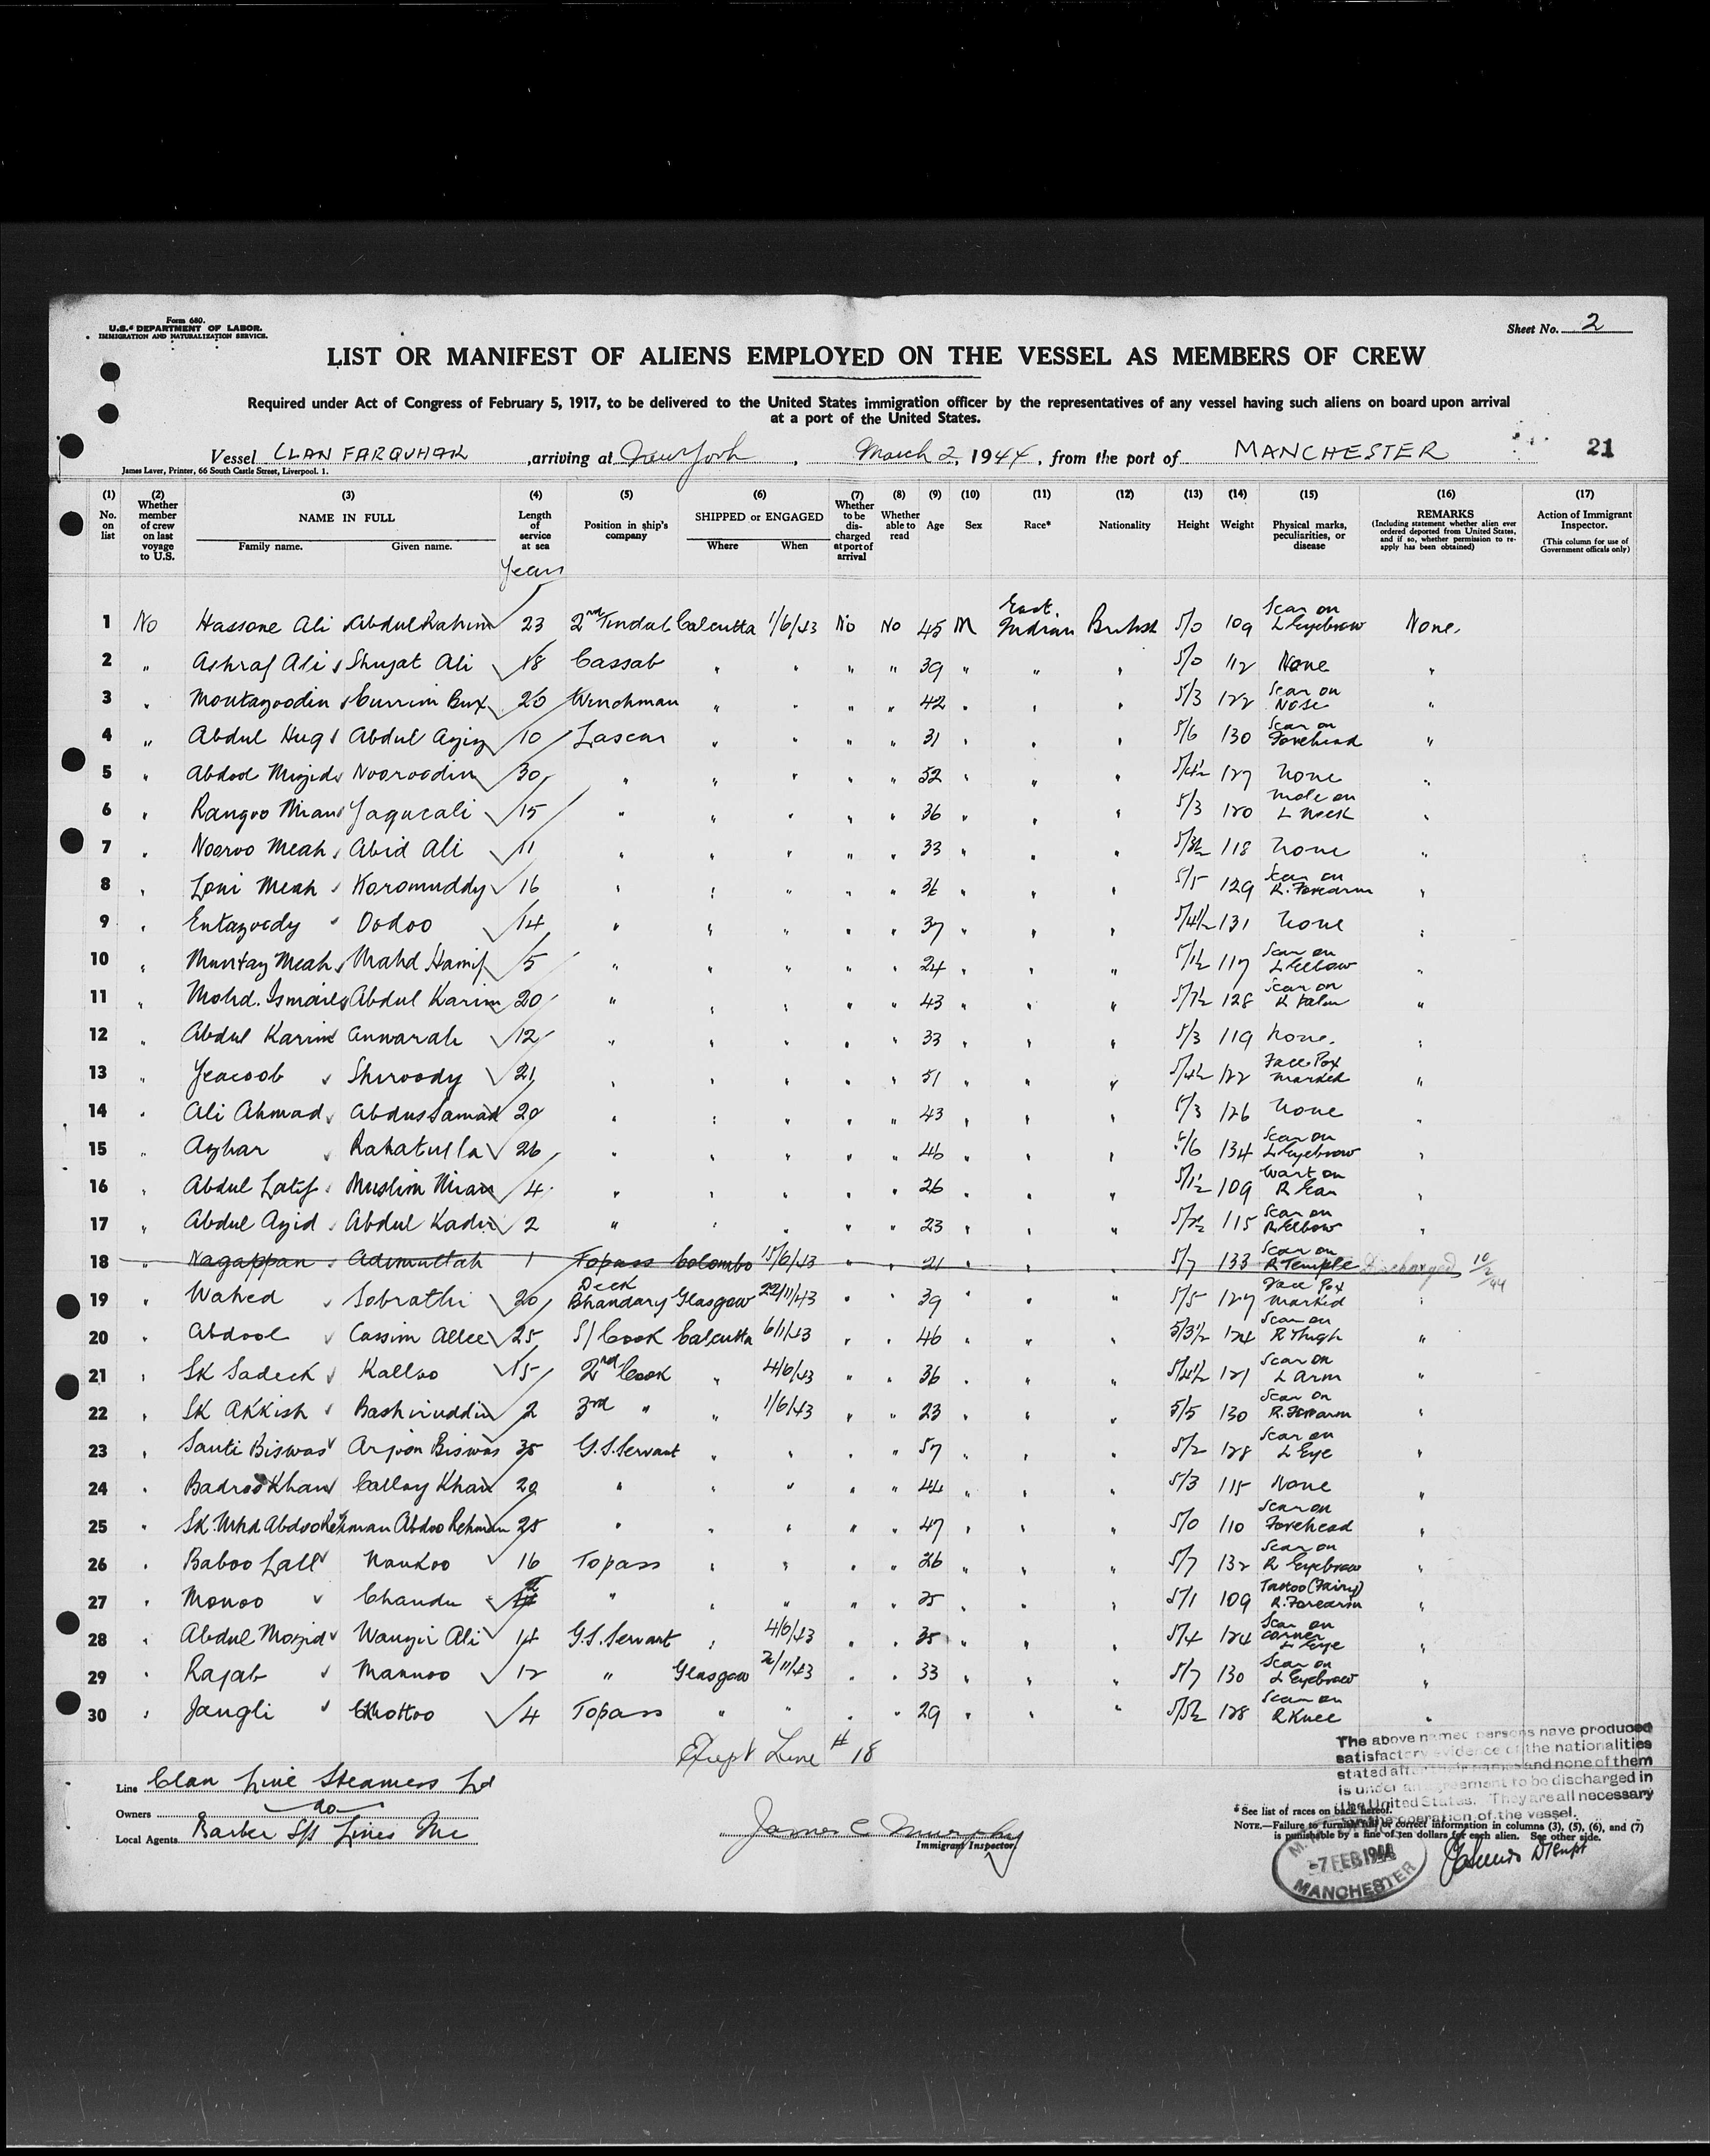 Form 680.
U.S. DEPARTMENT OF LABOR.
IMMIGRATION AND NATURALIZATION SERVICE.
Sheet No. 2
LIST OR MANIFEST OF ALIENS EMPLOYED ON THE VESSEL AS MEMBERS OF CREW
Required under Act of Congress of February 5, 1917, to be delivered to the United States immigration officer by the representatives of any vessel having such aliens on board upon arrival
at a port of the United States.
Vessel CLAN FARQUHAR, arriving at New York, March 2, 1944, from the port of MANCHESTER
21
James Laver, Printer, 66 South Castle Street, Liverpool. 1.
(1) No. on list (2) Whether member of crew on last voyage to U.S. (3) NAME IN FULL Family name. Given name. (4) Length of service at sea (5) Position in ship's company (6) SHIPPED or ENGAGED Where When (7) Whether to be discharged at port of arrival (8) Whether able to read (9) Age (10) Sex (11) Race* (12) Nationality (13) Height (14) Weight (15) Physical marks, peculiarities, or disease (16) REMARKS (Including statement whether alien ever ordered deported from United States, and if so, whether permission to re-apply has been obtained) (17) Action of Immigrant Inspector. (This column for use of Government officials only)
Years
1 No Hassone Ali Abdul Rahim 23 2nd Tindal Calcutta 1/6/43 No No 45 M East Indian British 5/0 109 Scar on L Eyebrow None.
2 " Ashraf Ali Shujat Ali 18 Cassab " " " " 39 " " " 5/0 112 None "
3 " Montazoodin Currim Bux 26 Winchman " " " " 42 " " " 5/3 122 Scar on Nose "
4 " Abdul Huq Abdul Aziz 10 Lascar " " " " 31 " " " 5/6 130 Scar on Forehead "
5 " Abdool Mozid Nooroodin 30 " " " " " 52 " " " 5/4½ 127 None "
6 " Rangoo Mian Yaqucali 15 " " " " " 36 " " " 5/3 120 Mole on L Neck "
7 " Nooroo Meah Abid Ali 11 " " " " " 33 " " " 5/3½ 118 None "
8 " Loni Meah Koromuddy 16 " " " " " 36 " " " 5/5 129 Scar on R. Forearm "
9 " Entazoody Dodoo 14 " " " " " 37 " " " 5/4½ 131 None "
10 " Muntaz Meah Mahd Hanif 5 " " " " " 24 " " " 5/1½ 117 Scar on L Elbow "
11 " Mohd. Ismail Abdul Karim 20 " " " " " 43 " " " 5/7½ 128 Scar on R Palm "
12 " Abdul Karim Anwarali 12 " " " " " 33 " " " 5/3 119 None. "
13 " Yeacoob Shiroody 21 " " " " " 51 " " " 5/4½ 122 Face Pox Marked "
14 " Ali Ahmad Abdus Samad 20 " " " " " 43 " " " 5/3 126 None "
15 " Azhar Rahatulla 26 " " " " " 46 " " " 5/6 134 Scar on L Eyebrow "
16 " Abdul Latif Muslim Mian 4 " " " " " 26 " " " 5/1½ 109 Wart on R Ear "
17 " Abdul Azid Abdul Kadir 2 " " " " " 23 " " " 5/2½ 115 Scar on R. Elbow "
18 " Nagappan Adimultah 1 Topass Colombo 15/6/43 " " 21 " " " 5/7 133 Scar on R Temple Discharged 10/2/44
19 " Wahed Sobrathi 20 Deck Bhandary Glasgow 22/11/43 " " 39 " " " 5/5 127 Face Pox Marked "
20 " Abdool Cassim Allee 25 S/Cook Calcutta 6/1/43 " " 46 " " " 5/3½ 124 Scar on R Thigh "
21 " SK Sadeck Kalloo 15 2nd Cook " 4/6/43 " " 36 " " " 5/4½ 121 Scar on L Arm "
22 " SK Akkish Bashiruddin 2 3rd " " 1/6/43 " " 23 " " " 5/5 130 Scar on R. Forearm "
23 " Santi Biswas Arjoon Biswas 35 G.S. Servant " " " " 57 " " " 5/2 128 Scar on L Eye "
24 " Badroo Khan Calloy Khan 29 " " " " " 44 " " " 5/3 115 None "
25 " SK. Mhd Abdoo Rehman Abdoo Rehman 25 " " " " " 47 " " " 5/0 110 Scar on Forehead "
26 " Baboo Lall Nankoo 16 Topass " " " " 26 " " " 5/7 132 Scar on R Eyebrow "
27 " Monoo Chandu " " " " " 25 " " " 5/1 109 Tattoo (Fairy) R. Forearm "
28 " Abdul Mozid Wanzir Ali 14 G.S. Servant " 4/6/43 " " 35 " " " 5/4 124 Scar on corner L Eye "
29 " Rajab Mannoo 12 " Glasgow 2/11/43 " " 33 " " " 5/7 130 Scar on L Eyebrow "
30 " Jangli Chottoo 4 Topass " " " " 29 " " " 5/5½ 128 Scar on R Knee "
Except Line # 18
The above named persons have produced
satisfactory evidence of the nationalities
stated after their names and none of them
is under an agreement to be discharged in
the United States. They are all necessary
for the operation of the vessel.
Line Clan Line Steamers Ld
Owners do
Local Agents Barber S/S Lines Inc
James C Murphy
Immigrant Inspector.
* See list of races on back hereof.
NOTE.—Failure to furnish full or correct information in columns (3), (5), (6), and (7)
is punishable by a fine of ten dollars for each alien. See other side.
-7 FEB 1944
MANCHESTER